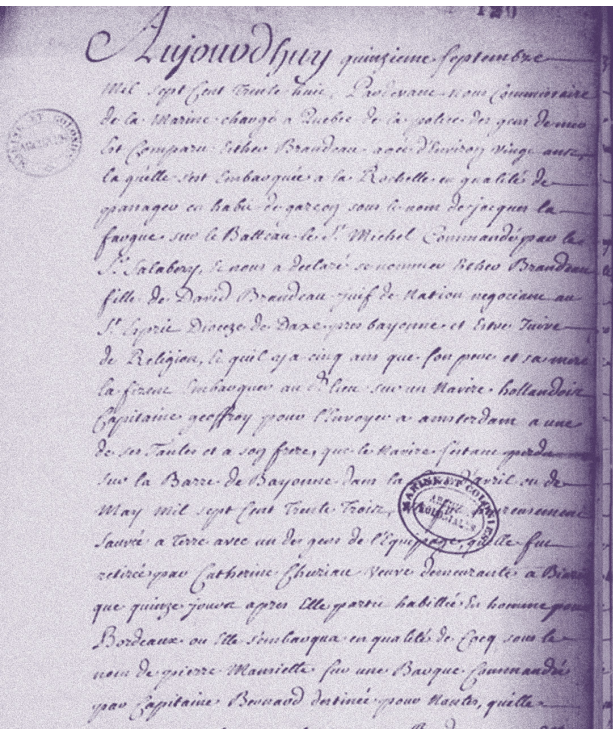 120
Aujourdhuy quinzieme septembre
Mil sept Cent Trente huit, Pardevant Nous Commissaire
de la Marine chargé a Quebec de la police des gens de mer
Est Comparu Esther Brandeau agée d'Environ vingt ans,
la quelle s'est Embarquée a la Rochelle en qualité de
passager en habit de garçon sous le nom de jacques la
fargue sur le Batteau le St. Michel Commandé par le
Sr. Salabery, Et nous a declaré se nommer Esther Brandeau
fille de David Brandeau juif de Nation negociant au
St. Esprit Dioceze de Daxe pres bayonne et Estre Juive
de Religion, Et quil y a cinq ans que son pere et sa mere
la firent Embarquer au d. lieu sur un Navire hollandois
Capitaine geoffroy pour l'Envoyer a amsterdam a une
de ses Tantes et a son frere, que le Navire s'etant perdu
sur la Barre de Bayonne dans la d'avril ou de
May mil sept Cent Trente Trois, heureusement
sauvée a Terre avec un des gens de l'Equipage, qu'elle fut
retirée par Catherine Churiau Veuve demeurante a
que quinze jours apres Elle partit habillée En homme pour
Bordeaux ou Elle s'embarqua en qualité de Cocq sous le
nom de pierre Mausiette sur une Barque Commandée
par Capitaine Bernard destinée pour Nantes, quelle
MARINE ET COLONIES
MARINE ET COLONIES